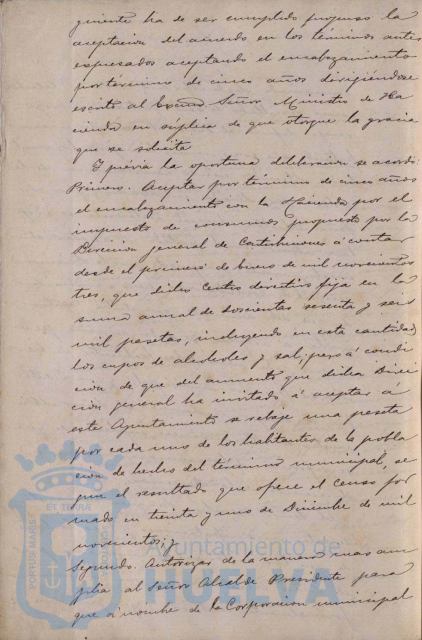 guiente ha de ser cumplido propuso la
aceptacion del acuerdo en los términos antes
espresados aceptando el encabezamiento
por término de cinco años dirigiéndose
escrito al Excmo Señor Ministro de Ha
cienda en súplica de que otorgue la gracia
que se solicita
Y prévia la oportuna deliberacion se acordó:
Primero. Aceptar por término de cinco años
el encabezamiento con la Hacienda por el
impuesto de consumos propuesto por la
Direccion general de Contribuciones á contar
desde el primero de Enero de mil novecientos
tres, que dicho Centro directivo fija en la
suma anual de doscientas sesenta y seis
mil pesetas, incluyendo en esta cantidad
los cupos de alcoholes y sal; pero á condi
cion de que del aumento que dicha Direc
cion general ha invitado á aceptar á
este Ayuntamiento se rebaje una peseta
por cada uno de los habitantes de la pobla
cion de hecho del término municipal, se
gun el resultado que ofrece el Censo for
mado en treinta y uno de Diciembre de mil
novecientos; y
Segundo. Autorizar de la manera mas am
plia al Señor Alcalde Presidente para
que á nombre de la Corporacion municipal
PORTUS MARIS
ET TERRÆ
Ayuntamiento de
HUELVA